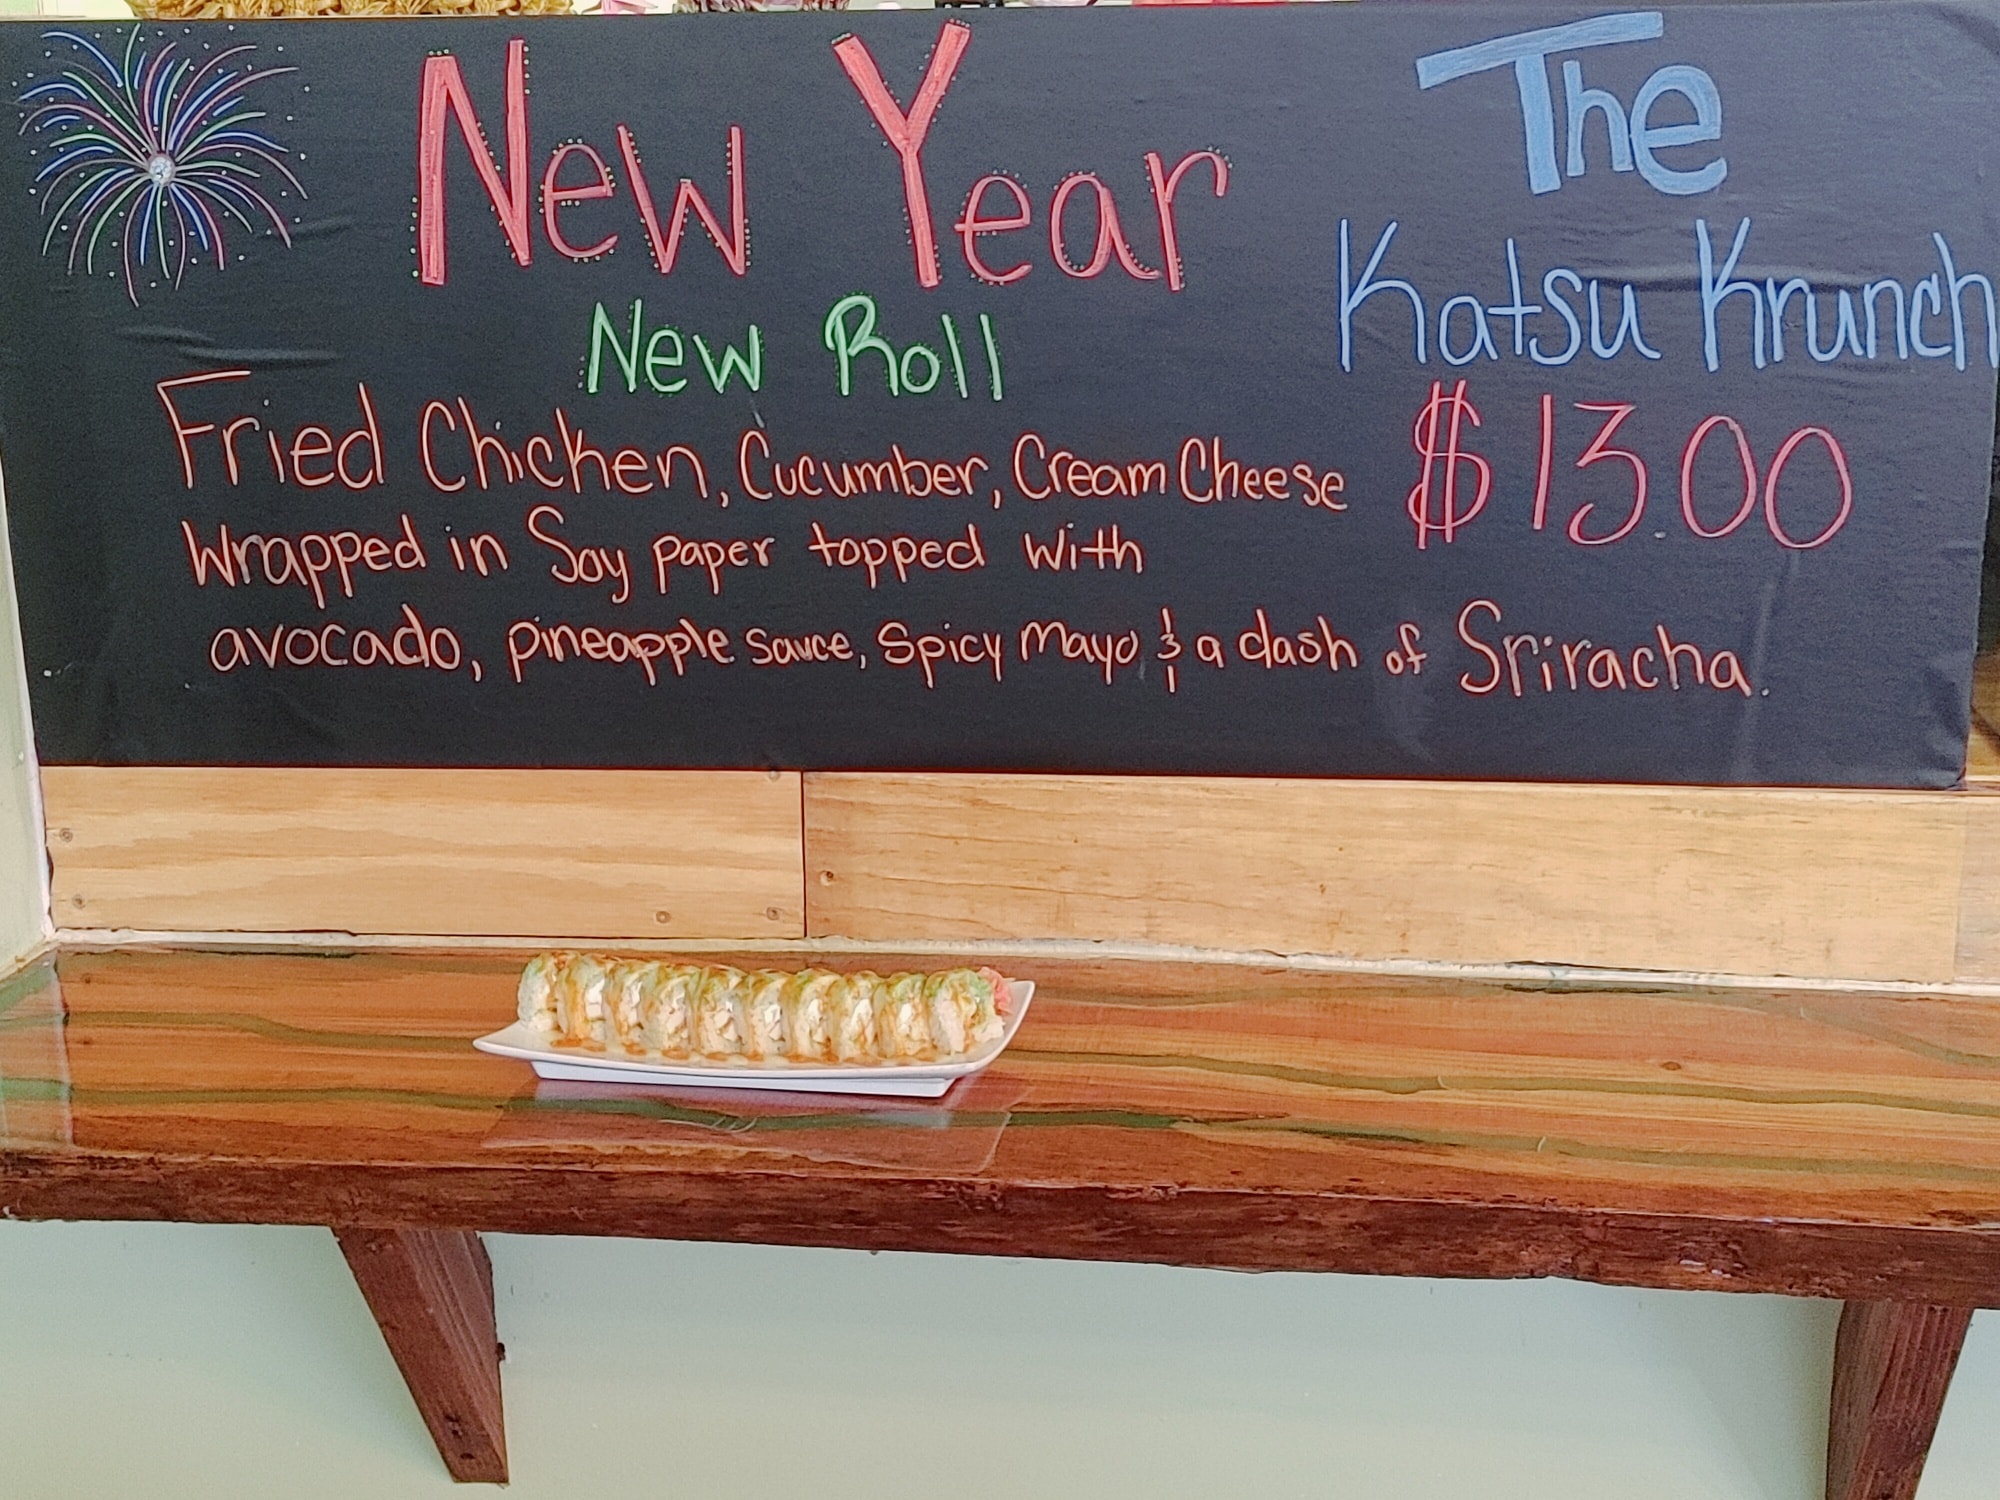 New Year
New Roll
Fried Chicken, Cucumber, Cream Cheese
Wrapped in Soy paper topped with
avocado, pineapple sauce, Spicy Mayo & a dash of Sriracha.
The
Katsu Krunch
$13.00